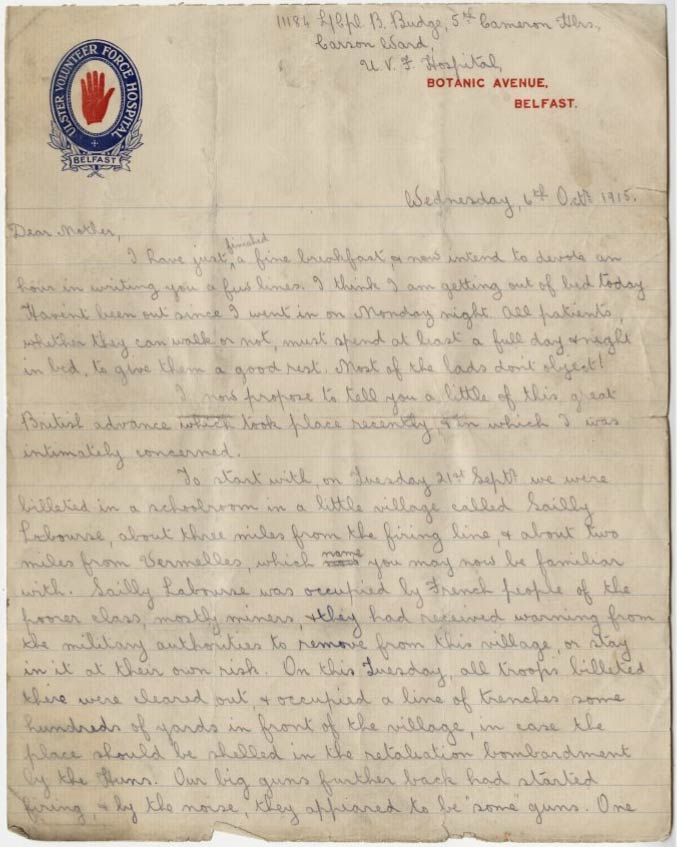 11184 L/Cpl. B. Budge, 5th Cameron Hrs.,
Carson Ward,
U. V. F. Hospital,
BOTANIC AVENUE,
BELFAST.
ULSTER VOLUNTEER FORCE HOSPITAL
BELFAST
Wednesday, 6th Octr. 1915.
Dear Mother,
I have just finished a fine breakfast, & now intend to devote an
hour in writing you a few lines. I think I am getting out of bed today.
Havent been out since I went in on Monday night. All patients,
whether they can walk or not, must spend at least a full day & night
in bed, to give them a good rest. Most of the lads dont object!
I now propose to tell you a little of this great
British advance which took place recently, & in which I was
intimately concerned.
To start with, on Tuesday 21st Septr. we were
billeted in a schoolroom in a little village called Sailly
Labourse, about three miles from the firing line, & about two
miles from Vermelles, which name you may now be familiar
with. Sailly Labourse was occupied by French people of the
poorer class, mostly miners, & they had received warning from
the military authorities to remove from this village, or stay
in it at their own risk. On this Tuesday, all troops billeted
there were cleared out, & occupied a line of trenches some
hundreds of yards in front of the village, in case the
place should be shelled in the retaliation bombardment
by the Huns. Our big guns further back had started
firing, & by the noise, they appeared to be "some" guns. One